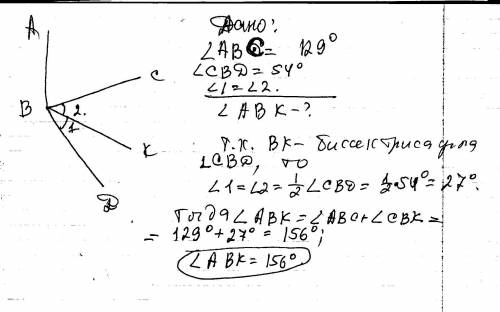 A
B
C
2.
1
K
D
Дано:
∠ABC = 129°
∠CBD = 54°
∠1 = ∠2.
∠ABK - ?
Т.к. BK - биссектриса угла
∠CBD, то
∠1 = ∠2 = 1/2 ∠CBD = 1/2 · 54° = 27°.
Тогда ∠ABK = ∠ABC + ∠CBK =
= 129° + 27° = 156°;
∠ABK = 156°